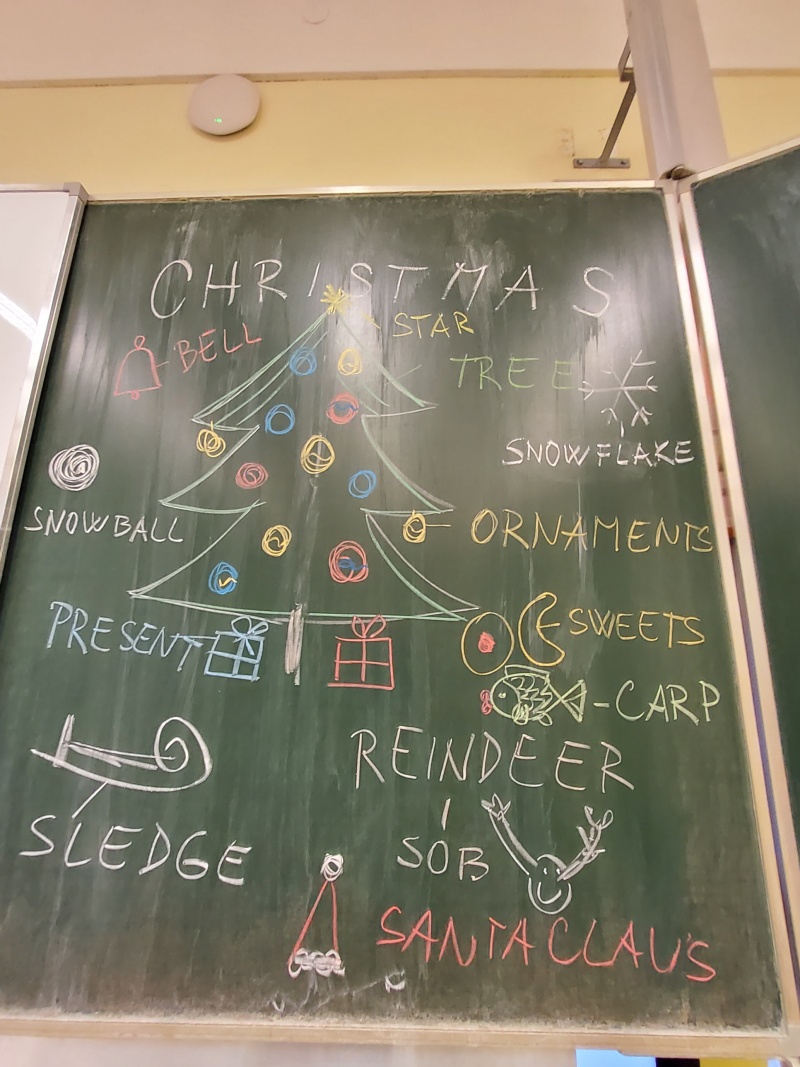 CHRISTMAS
STAR
BELL
TREE
SNOWFLAKE
SNOWBALL
ORNAMENTS
SWEETS
PRESENT
-CARP
REINDEER
SOB
SLEDGE
SANTA CLAU'S